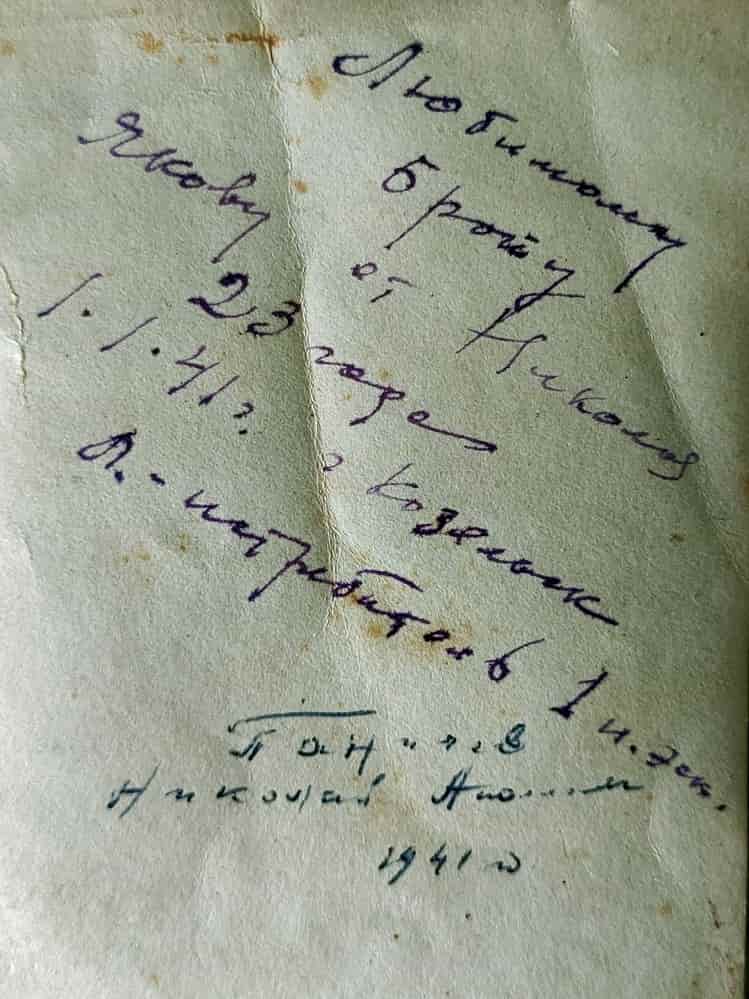 Любимому
брату
Якову
от Николая
23 года
1.1.41 г.
г Козельск
Л.-истребитель 1 и. эск.
Николай
1941 г